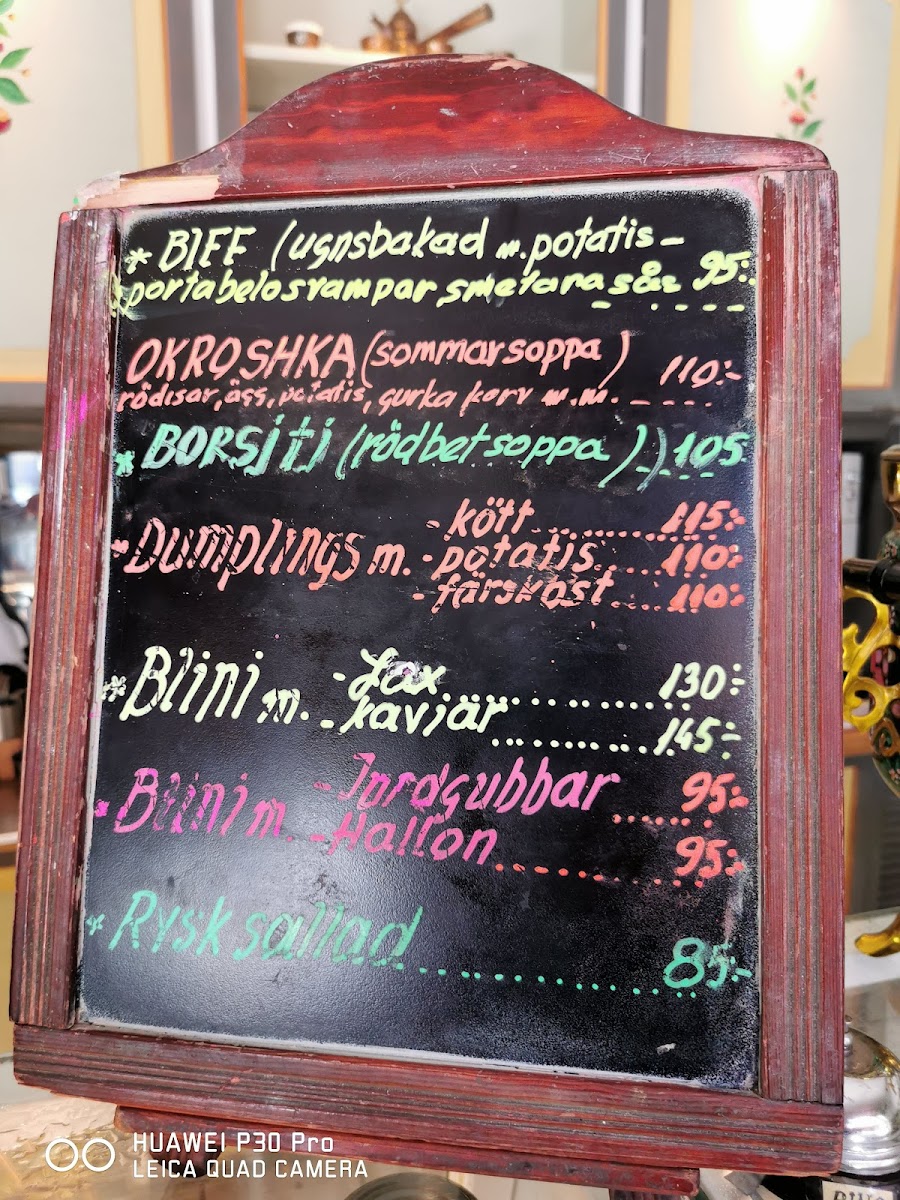 * BIFF (ugnsbakad m. potatis -
portabelosvampar, smetana sås 95:-
OKROSHKA (sommarsoppa) 110:-
rödisor, ägg, potatis, gurka korv m.m.
* BORSjTj (rödbetsoppa) 105
- Dumplings m. - kött 115:-
- potatis 110:-
- färskost 110:-
* Blini m. - Lax 130:-
- kavjär 145:-
* Blini m. - Jordgubbar 95:-
- Hallon 95:-
* Rysk sallad 85:-
HUAWEI P30 Pro
LEICA QUAD CAMERA